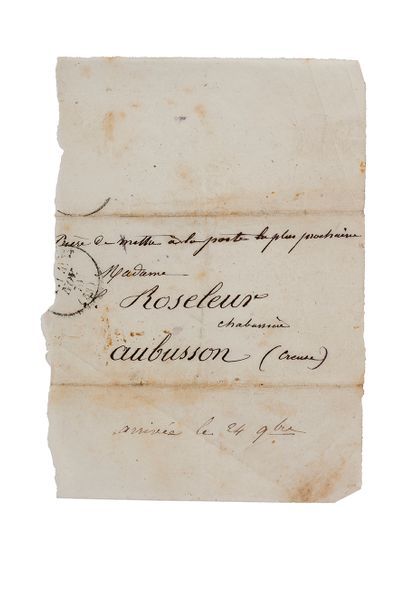 Prière de mettre à la poste la plus prochaine
Madame
Roseleur
aubusson (Creuse)
arrivée le 24 9bre